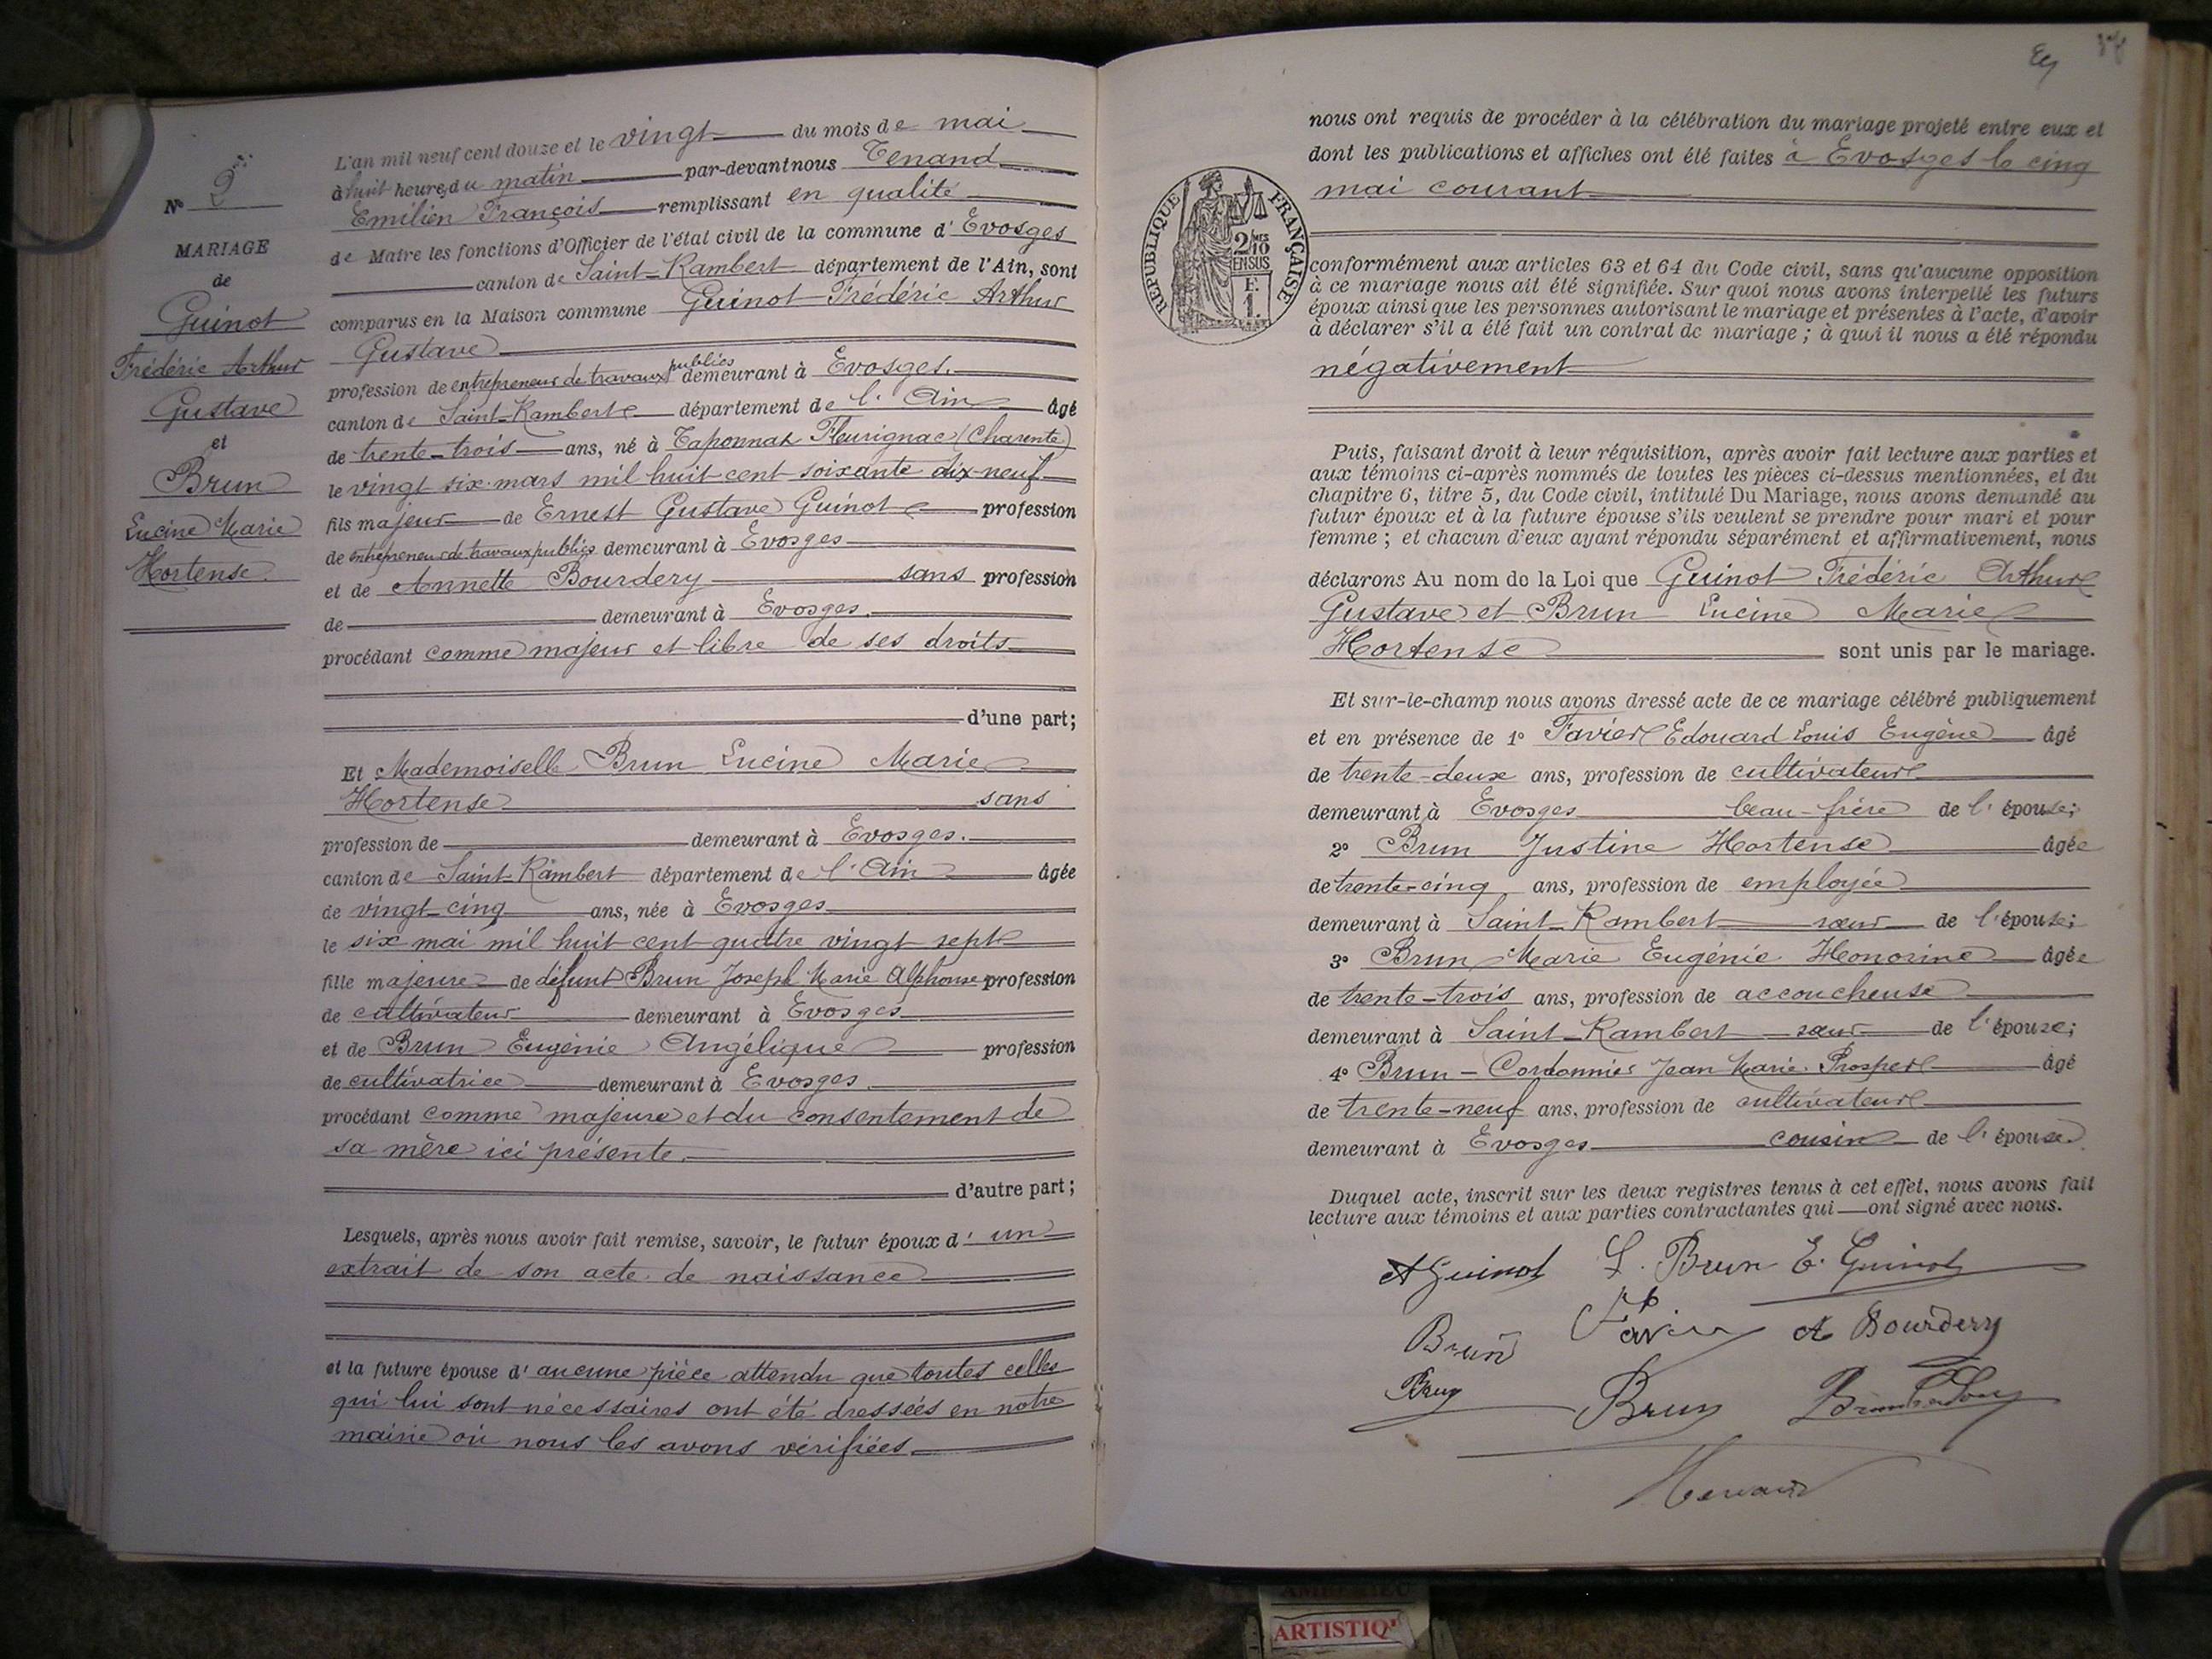 N° 2
MARIAGE
de
Guinot
Frédéric Arthur
Gustave
et
Brun
Lucine Marie
Hortense.
L'an mil neuf cent douze et le vingt du mois de mai
à huit heures du matin par-devant nous Tenand
Emilien François remplissant en qualité
de Maire les fonctions d'Officier de l'état civil de la commune d' Evosges
canton de Saint-Rambert département de l'Ain, sont
comparus en la Maison commune Guinot Frédéric Arthur
Gustave
profession de entrepreneur de travaux publics demeurant à Evosges.
canton de Saint-Rambert département de l'Ain âgé
de trente-trois ans, né à Taponnat Fleurignac (Charente)
le vingt six mars mil huit cent soixante dix-neuf
fils majeur de Ernest Gustave Guinot profession
de entrepreneur de travaux publics demeurant à Evosges
et de Annette Bourdery sans profession
de demeurant à Evosges.
procédant comme majeur et libre de ses droits
d'une part;
Et Mademoiselle Brun Lucine Marie
Hortense sans
profession de demeurant à Evosges.
canton de Saint-Rambert département de l'Ain âgée
de vingt-cinq ans, née à Evosges
le six mai mil huit cent quatre vingt sept
fille majeure de défunt Brun Joseph Marie Alphonse profession
de cultivateur demeurant à Evosges
et de Brun Eugénie Angélique profession
de cultivatrice demeurant à Evosges.
procédant comme majeure et du consentement de
sa mère ici présente.
d'autre part;
Lesquels, après nous avoir fait remise, savoir, le futur époux d' un
extrait de son acte de naissance
et la future épouse d' aucune pièce attendu que toutes celles
qui lui sont nécessaires ont été dressées en notre
mairie où nous les avons vérifiées.
nous ont requis de procéder à la célébration du mariage projeté entre eux et
dont les publications et affiches ont été faites à Evosges le cinq
mai courant
RÉPUBLIQUE FRANÇAISE
2/10MES
EN SUS
F.
1.
conformément aux articles 63 et 64 du Code civil, sans qu'aucune opposition
à ce mariage nous ait été signifiée. Sur quoi nous avons interpellé les futurs
époux ainsi que les personnes autorisant le mariage et présentes à l'acte, d'avoir
à déclarer s'il a été fait un contrat de mariage ; à quoi il nous a été répondu
négativement
Puis, faisant droit à leur réquisition, après avoir fait lecture aux parties et
aux témoins ci-après nommés de toutes les pièces ci-dessus mentionnées, et du
chapitre 6, titre 5, du Code civil, intitulé Du Mariage, nous avons demandé au
futur époux et à la future épouse s'ils veulent se prendre pour mari et pour
femme ; et chacun d'eux ayant répondu séparément et affirmativement, nous
déclarons Au nom de la Loi que Guinot Frédéric Arthur
Gustave et Brun Lucine Marie
Hortense sont unis par le mariage.
Et sur-le-champ nous avons dressé acte de ce mariage célébré publiquement
et en présence de 1° Favier Edouard Louis Eugène âgé
de trente-deux ans, profession de cultivateur
demeurant à Evosges beau-frère de l'épouse;
2° Brun Justine Hortense âgée
de trente-cinq ans, profession de employée
demeurant à Saint-Rambert sœur de l'épouse;
3° Brun Marie Eugénie Honorine âgée
de trente-trois ans, profession de accoucheuse
demeurant à Saint-Rambert sœur de l'épouse;
4° Brun-Cordonnier Jean Marie Prosper âgé
de trente-neuf ans, profession de cultivateur
demeurant à Evosges cousin de l'épouse.
Duquel acte, inscrit sur les deux registres tenus à cet effet, nous avons fait
lecture aux témoins et aux parties contractantes qui ont signé avec nous.
A Guinot L. Brun E. Guinot
Brun Favier A Bourdery
Brun Brun
Tenand
ARTISTIQ